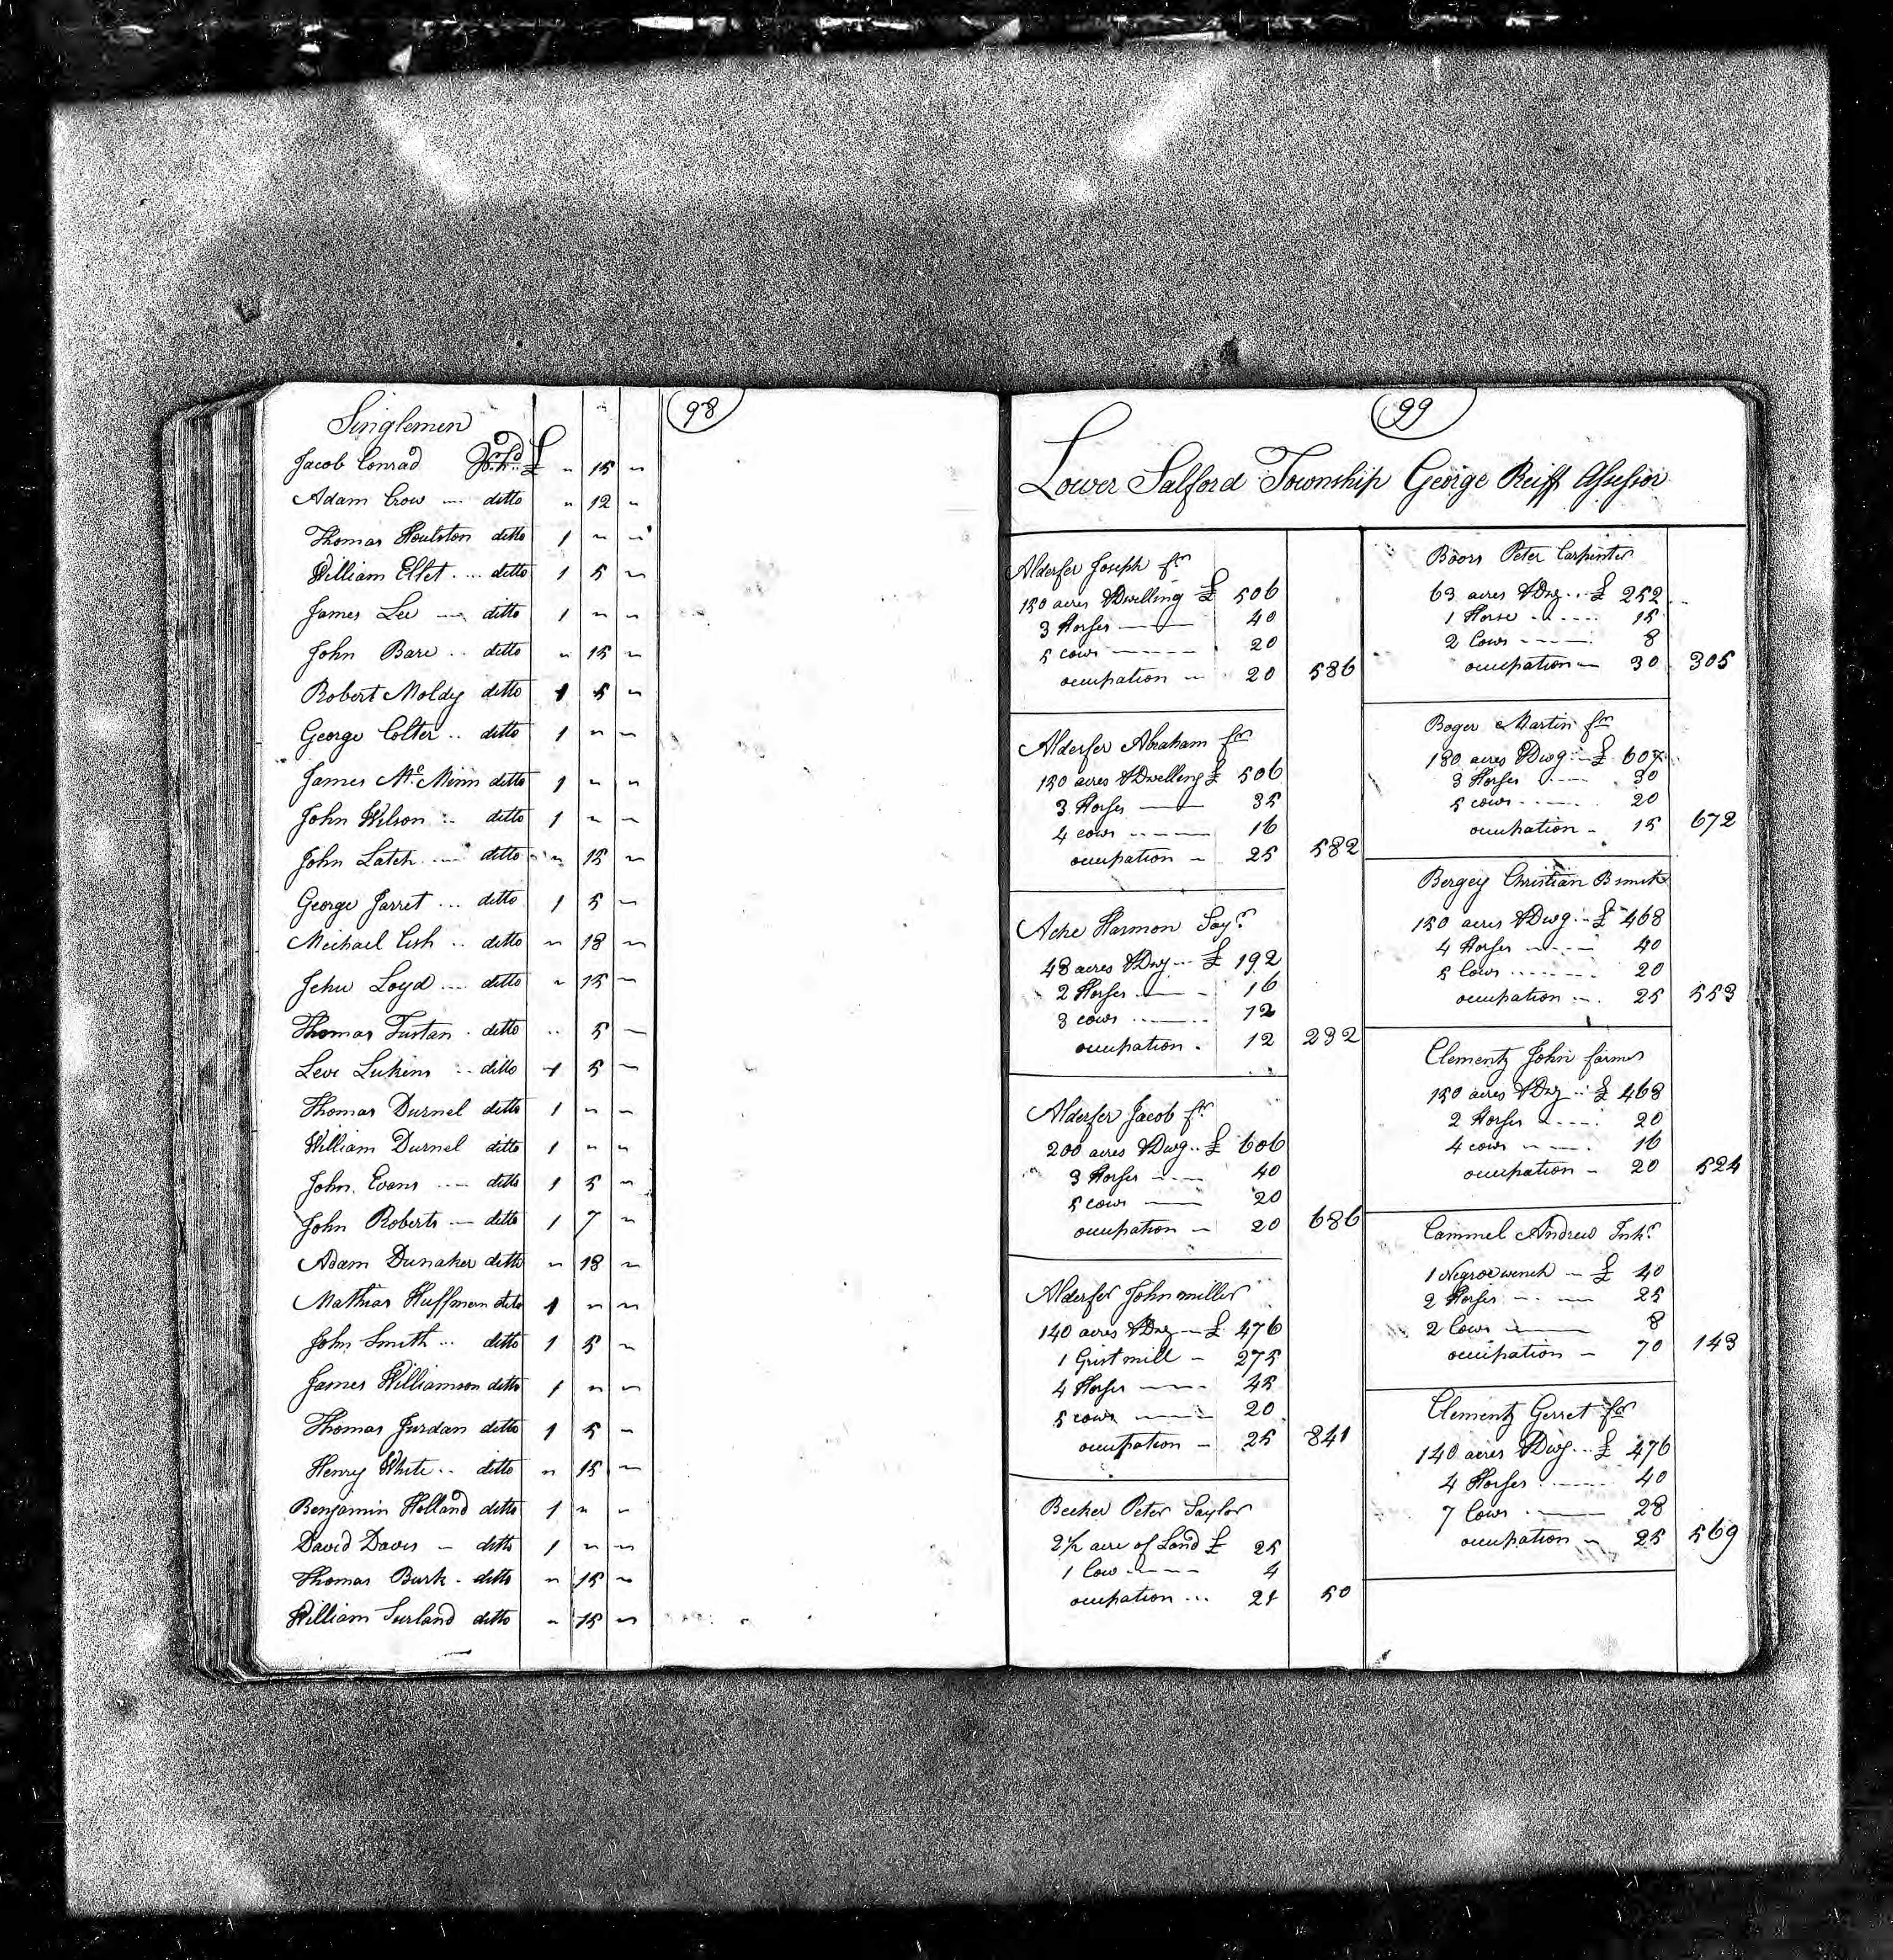 98
Singlemen
Jacob Conrad £ " 15 "
Adam Crow ditto " 12 "
Thomas Houlston ditto 1 " "
William Ellet ditto 1 5 "
James Lee ditto 1 " "
John Bare ditto " 15 "
Robert Moldy ditto 1 5 "
George Colter ditto 1 " "
James Mc Minn ditto 1 " "
John Wilson ditto 1 " "
John Latch ditto " 15 "
George Jarret ditto 1 5 "
Michael Cish ditto " 18 "
Jehu Loyd ditto " 15 "
Thomas Tustan ditto " 5 "
Leve Lukins ditto 1 5 "
Thomas Durnel ditto 1 " "
William Durnel ditto 1 " "
John Evans ditto 1 5 "
John Roberts ditto 1 7 "
Adam Dunaker ditto " 18 "
Mathias Huffmen ditto 1 " "
John Smith ditto 1 5 "
James Williamson ditto 1 " "
Thomas Jurdan ditto 1 5 "
Henry White ditto " 15 "
Benjamin Holland ditto 1 " "
David Davis ditto 1 " "
Thomas Burk ditto " 15 "
William Surland ditto " 15 "
99
Lower Salford Township George Reiff Assessor
Alderfer Joseph fr
150 acres & Dwelling £ 506
3 Horses 40
5 cows 20
occupation 20 586
Alderfer Abraham fr
150 acres & Dwelling £ 506
3 Horses 35
4 cows 16
occupation 25 582
Ache Harmon Tayr
48 acres & Dwg £ 192
2 Horses 16
3 cows 12
occupation 12 232
Alderfer Jacob fr
200 acres & Dwg £ 606
3 Horses 40
5 cows 20
occupation 20 686
Alderfer John miller
140 acres & Dwg £ 476
1 Grist mill 275
4 Horses 45
5 cows 20
occupation 25 841
Becker Peter Taylor
2½ acre of Land £ 25
1 Cow 4
occupation 21 50
Boors Peter Carpenter
63 acres & Dwg £ 252
1 Horse 15
2 Cows 8
occupation 30 305
Boger Martin fr
180 acres & Dwg £ 607
3 Horses 30
5 cows 20
occupation 15 672
Bergey Christian Bsmith
150 acres & Dwg £ 468
4 Horses 40
5 Cows 20
occupation 25 553
Clementz John farmer
150 acres & Dwg £ 468
2 Horses 20
4 cows 16
occupation 20 524
Cammel Andrew Inkr
1 Negroe wench £ 40
2 Horses 25
2 Cows 8
occupation 70 143
Clementz Gerret fr
140 acres & Dwg £ 476
4 Horses 40
7 Cows 28
occupation 25 569